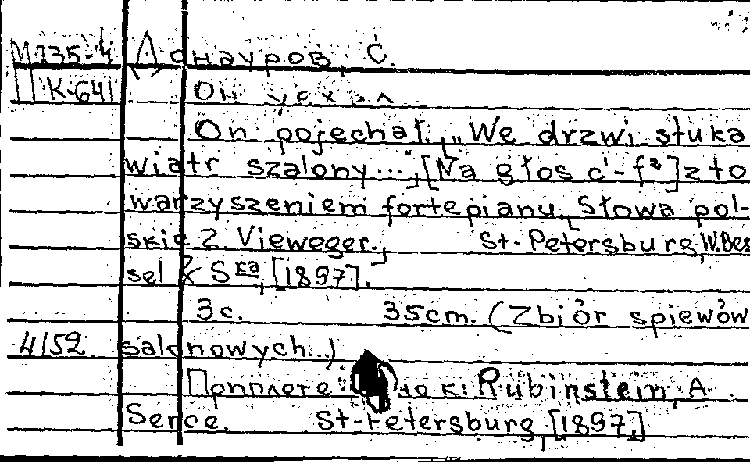 М135-4 Донауров, С.
П К-641 Он уехал
On pojechał. „We drzwi stuka
wiatr szalony...", [Na głos c'-f²] z to
warzyszeniem fortepianu. [Słowa pol-
skie Z. Vieweger.], St-Petersburg, W. Bes
sel & Ska, [1897].
3 c. 35cm. (Zbiór spiewów
4/52 salonowych.)
к: Rubinstein, A.
Serce. St-Petersburg, [1897.]